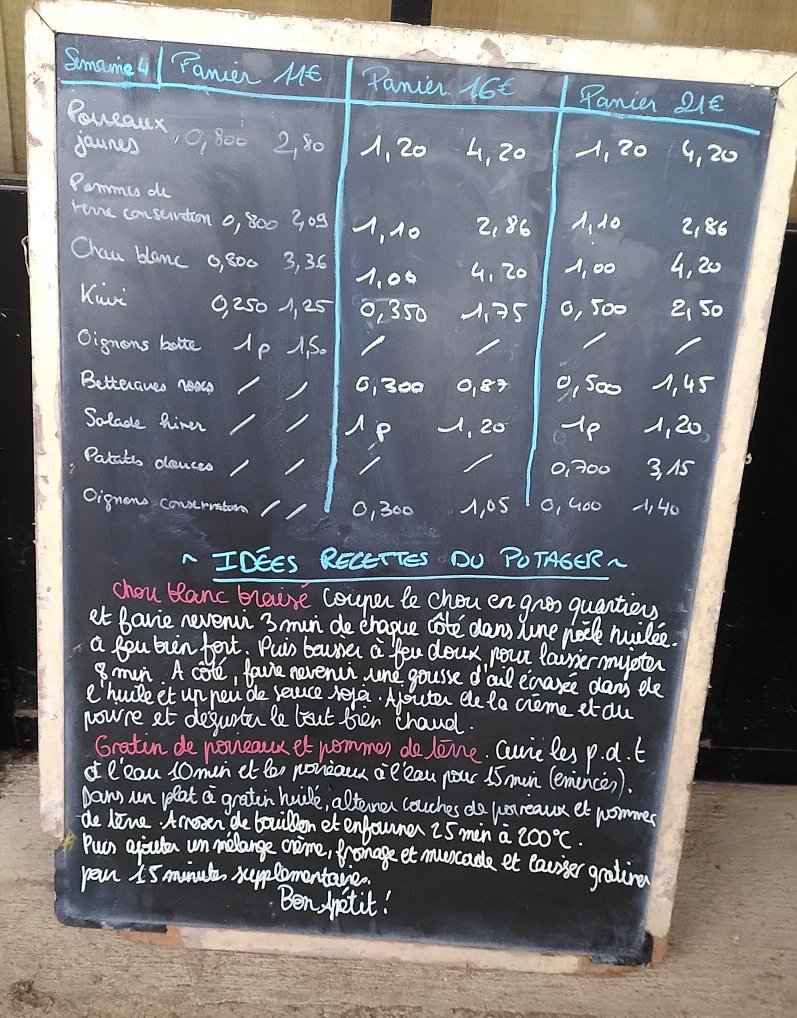 Semaine 4 Panier 11€ Panier 16€ Panier 21€
Poireaux
jaunes 0,800 2,80 1,20 4,20 1,20 4,20
Pommes de
terre conservation 0,800 2,09 1,10 2,86 1,10 2,86
Chou blanc 0,800 3,36 1,00 4,20 1,00 4,20
Kiwi 0,250 1,25 0,350 1,75 0,500 2,50
Oignons botte 1p 1,50 / / / /
Betteraves / / 0,300 0,87 0,500 1,45
Salade hiver / / 1p 1,20 1p 1,20
Patates douces / / / / 0,700 3,15
Oignons conservation / / 0,300 1,05 0,400 1,40
~ IDÉES RECETTES DU POTAGER ~
Chou blanc braisé Couper le chou en gros quartiers
et faire revenir 3 min de chaque côté dans une poêle huilée.
à feu bien fort. Puis baisser à feu doux, pour laisser mijoter
8 min. A côté, faire revenir une gousse d'ail écrasée dans de
l'huile et un peu de sauce soja. Ajouter de la crème et du
poivre et déguster le tout bien chaud.
Gratin de poireaux et pommes de terre. Cuire les p.d.t
à l'eau 10min et les poireaux à l'eau pour 15min (émincés).
Dans un plat à gratin huilé, alterner couches de poireaux et pommes
de terre. Arroser de bouillon et enfourner 25 min à 200°C.
Puis ajouter un mélange crème, fromage et muscade et laisser gratiner
pour 15 minutes supplémentaires.
Bon Apétit !